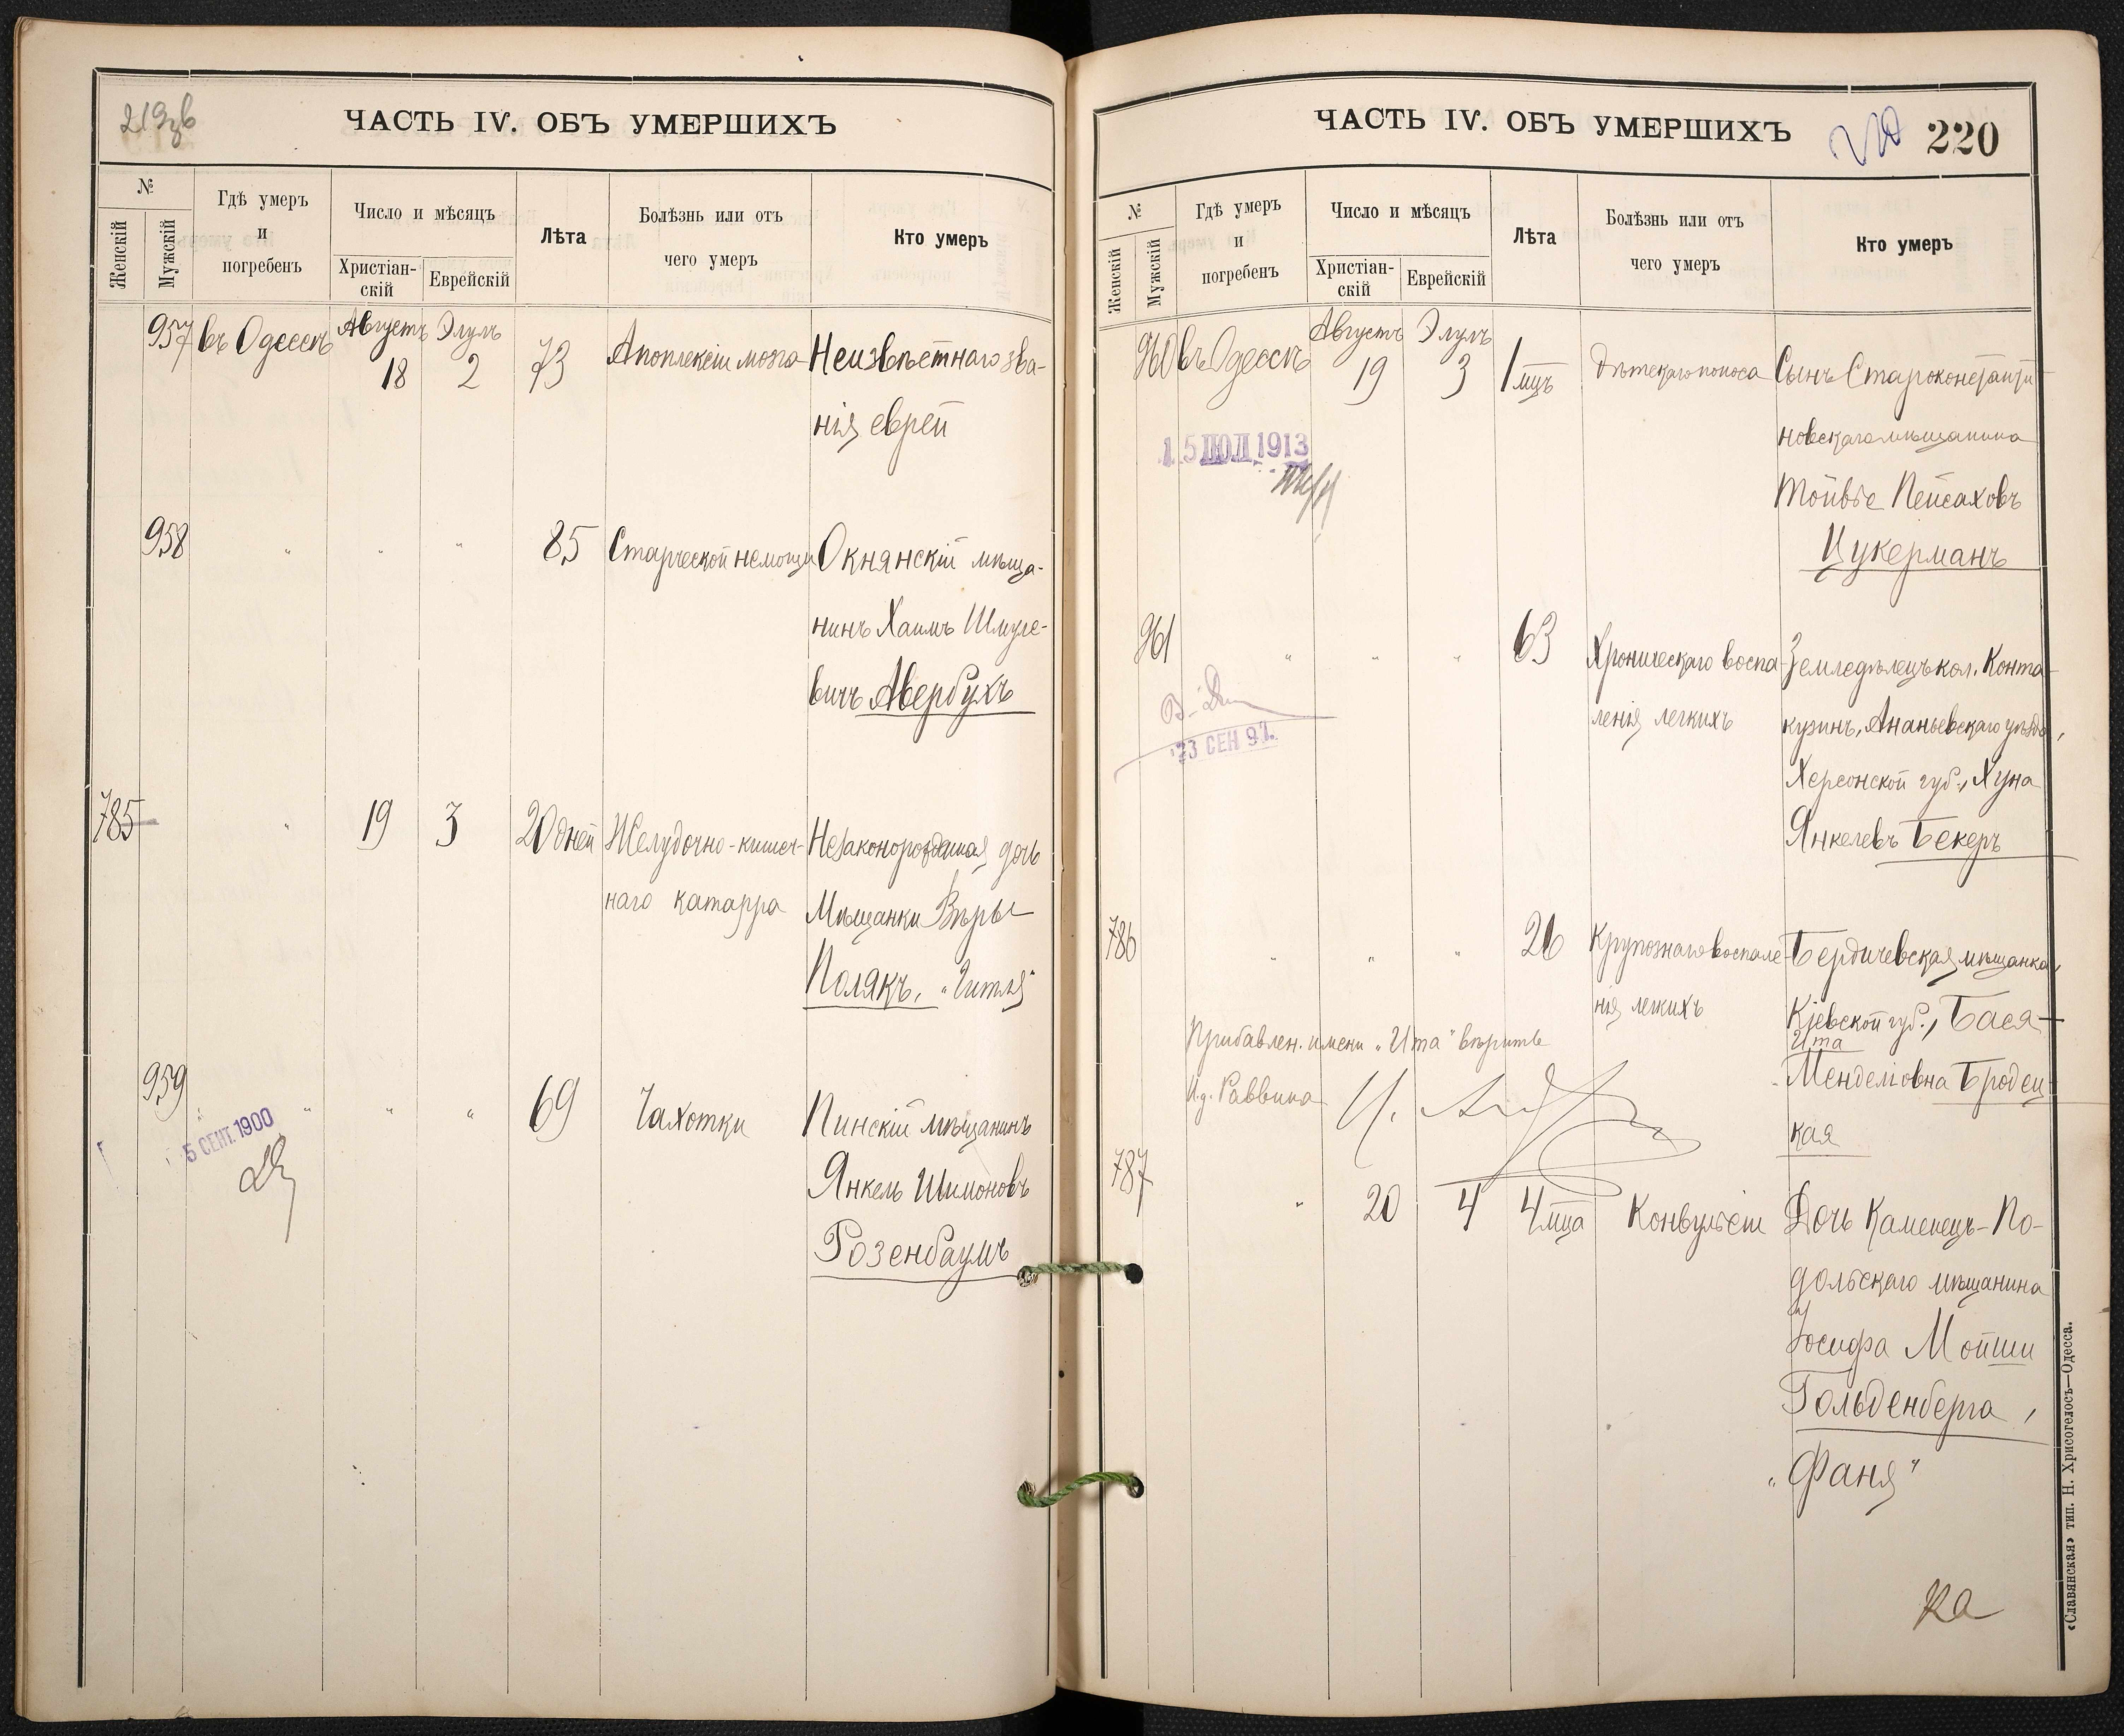 219об
ЧАСТЬ IV. ОБЪ УМЕРШИХЪ
№
Женскій
Мужскій
Гдѣ умеръ
и
погребенъ
Число и мѣсяцъ
Христіан-
скій
Еврейскій
Лѣта
Болѣзнь или отъ
чего умеръ
Кто умеръ
957 въ Одессѣ Августъ 18 Элулъ 2 73 Апоплексіи мозга Неизвѣстнаго зва-
нія еврей
958 " " " 85 Старческой немощи Окнянскій мѣща-
нинъ Хаимъ Шмуле-
вичъ Авербухъ
785 " 19 3 20 дней Желудочно-кишеч- Незаконорожденная дочь
наго катарра Мѣщанки Вѣры
Полякъ, "Гитля"
959 " " " 69 Чахотки Пинскій мѣщанинъ
5 СЕНТ. 1900
Янкель Шимоновъ
Розенбаумъ
ЧАСТЬ IV. ОБЪ УМЕРШИХЪ
220 220
№
Женскій
Мужскій
Гдѣ умеръ
и
погребенъ
Число и мѣсяцъ
Христіан-
скій
Еврейскій
Лѣта
Болѣзнь или отъ
чего умеръ
Кто умеръ
960 въ Одессѣ Августъ 19 Элулъ 3 1 мцъ Дѣтскаго поноса Сынъ Староконстанти-
новскаго мѣщанина
15 ІЮЛ 1913
Тойвіе Пейсаховъ
Цукерманъ
961 " " " 63 Хроническаго воспа- Земледѣлецъ кол. Конта-
ленія легкихъ кузинъ, Ананьевскаго уѣзда,
23 СЕН 97.
Херсонской губ., Хуна
Янкелевъ Бекеръ
786 " " " 26 Крупознаго воспале- Бердичевская мѣщанка,
нія легкихъ Кіевской губ., Бася-
Ита
Прибавлен. имени "Ита" вѣрить
Менделіовна Бродец-
И.д. Раввина
кая
787 " 20 4 4 мца Конвульсіи Дочь Каменецъ-По-
дольскаго мѣщанина
Іосифа Мойши
Гольденберга,
"Фаня"
«Славянская» тип. Н. Хрисогелосъ—Одесса.